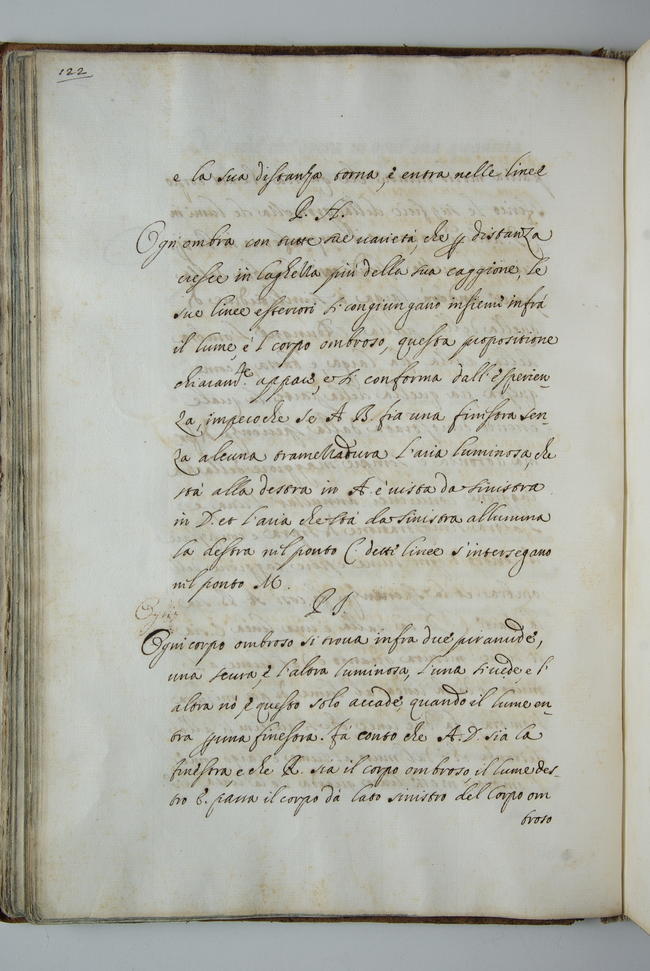 122
e la sua distanza torna, e entra nelle linee
P. H.
Ogn ombra con tutte sue varietà, che p distanza
cresce in laghezza più della sua caggione, le
sue linee esteriori si congiungano insieme infrà
il lume, e 'l corpo ombroso, questa propositione
chiaram.te appare, e si conforma dall' esperien-
za, imperoche se A B. fia una finestra sen-
za alcuna tramezzadura l'aria luminosa, che
stà alla destra in A. è vista da sinistra
in D. et l'aria, che stà da sinistra allumina
la destra nil ponto C. dette linee s'intersegano
nil ponto M.
P I.
Ogni corpo ombroso si trova infra due piramide,
una scura, e l'altra luminosa, l'una si vede e l'
altra nò, e questo solo accade, quando il lume en-
tra p una finestra. Fà conto che A. D. sia la
finestra e che R. sia il corpo ombroso il lume des-
tro passa il corpo da lato sinistro del Corpo om
broso